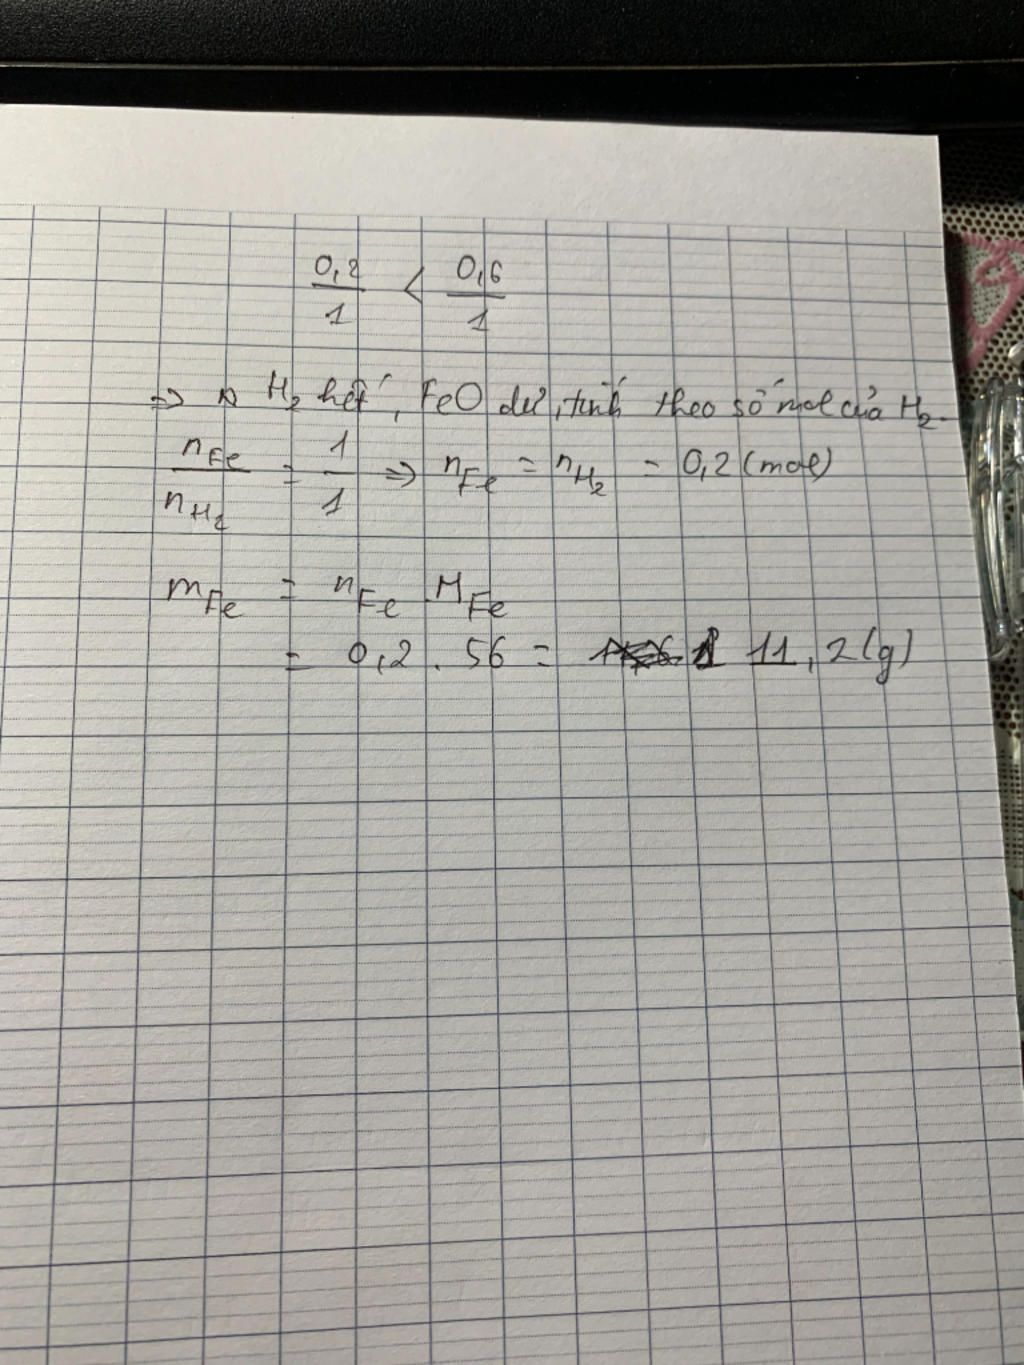 0,2/1 < 0,6/1
=> H₂ hết, FeO dư, tính theo số mol của H₂.
nFe/nH₂ = 1/1 => nFe = nH₂ = 0,2 (mol)
mFe = nFe . MFe
= 0,2 . 56 = 11,2 (g)